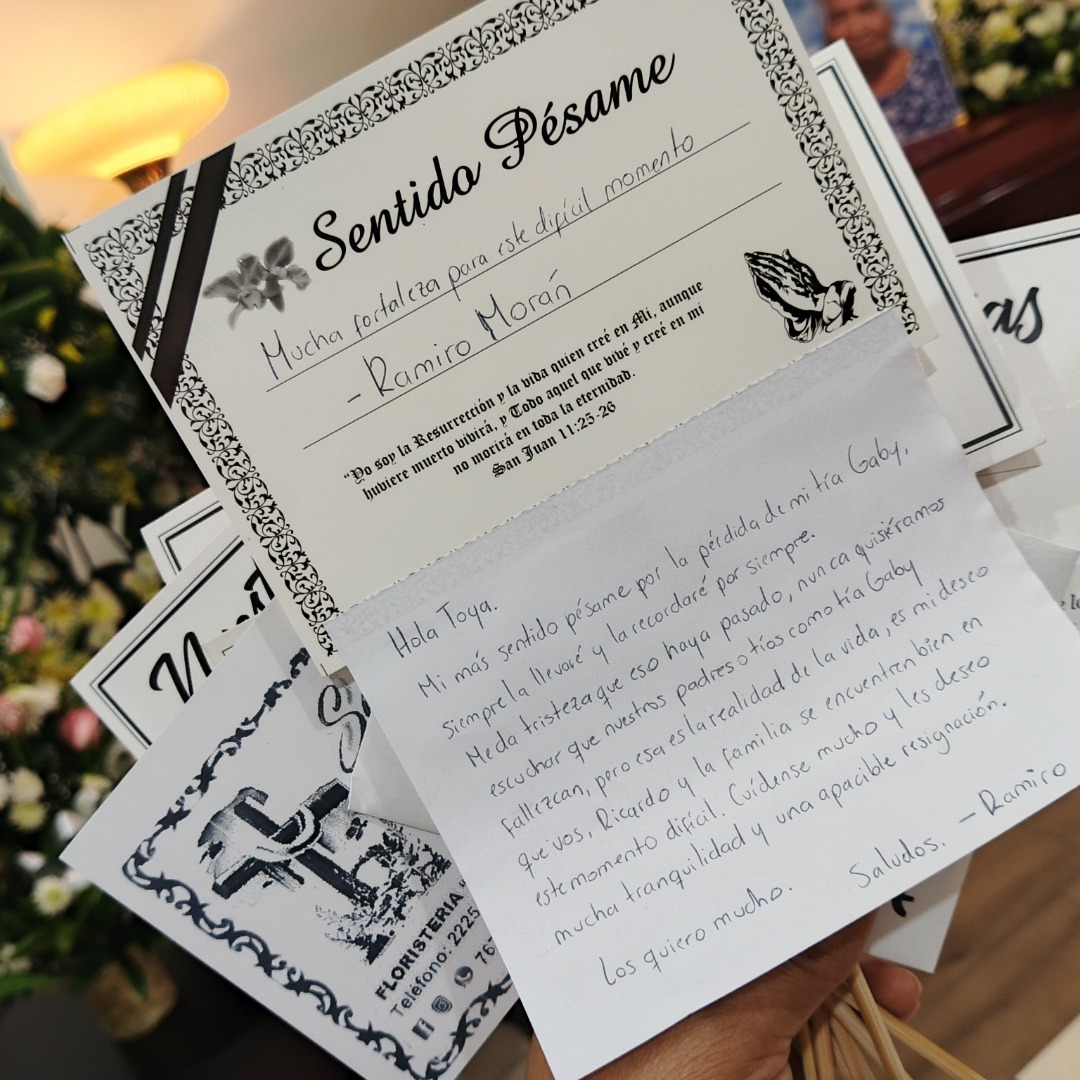 Sentido Pésame
Mucha fortaleza para este difícil momento
- Ramiro Morán
"Yo soy la Resurrección y la vida quien creé en Mi, aunque
hubiere muerto vivirá, y Todo aquel que vivé y creé en mi
no morirá en toda la eternidad.
San Juan 11:25-26
Hola Toya.
Mi más sentido pésame por la pérdida de mi tía Gaby,
siempre la llevaré y la recordaré por siempre.
Me da tristeza que eso haya pasado, nunca quisiéramos
escuchar que nuestros padres o tíos como tía Gaby
fallezcan, pero esa es la realidad de la vida, es mi deseo
que vos, Ricardo y la familia se encuentren bien en
este momento difícil. Cuídense mucho y les deseo
mucha tranquilidad y una apacible resignación.
Los quiero mucho. Saludos. - Ramiro
FLORISTERIA
Teléfono: 2225
76